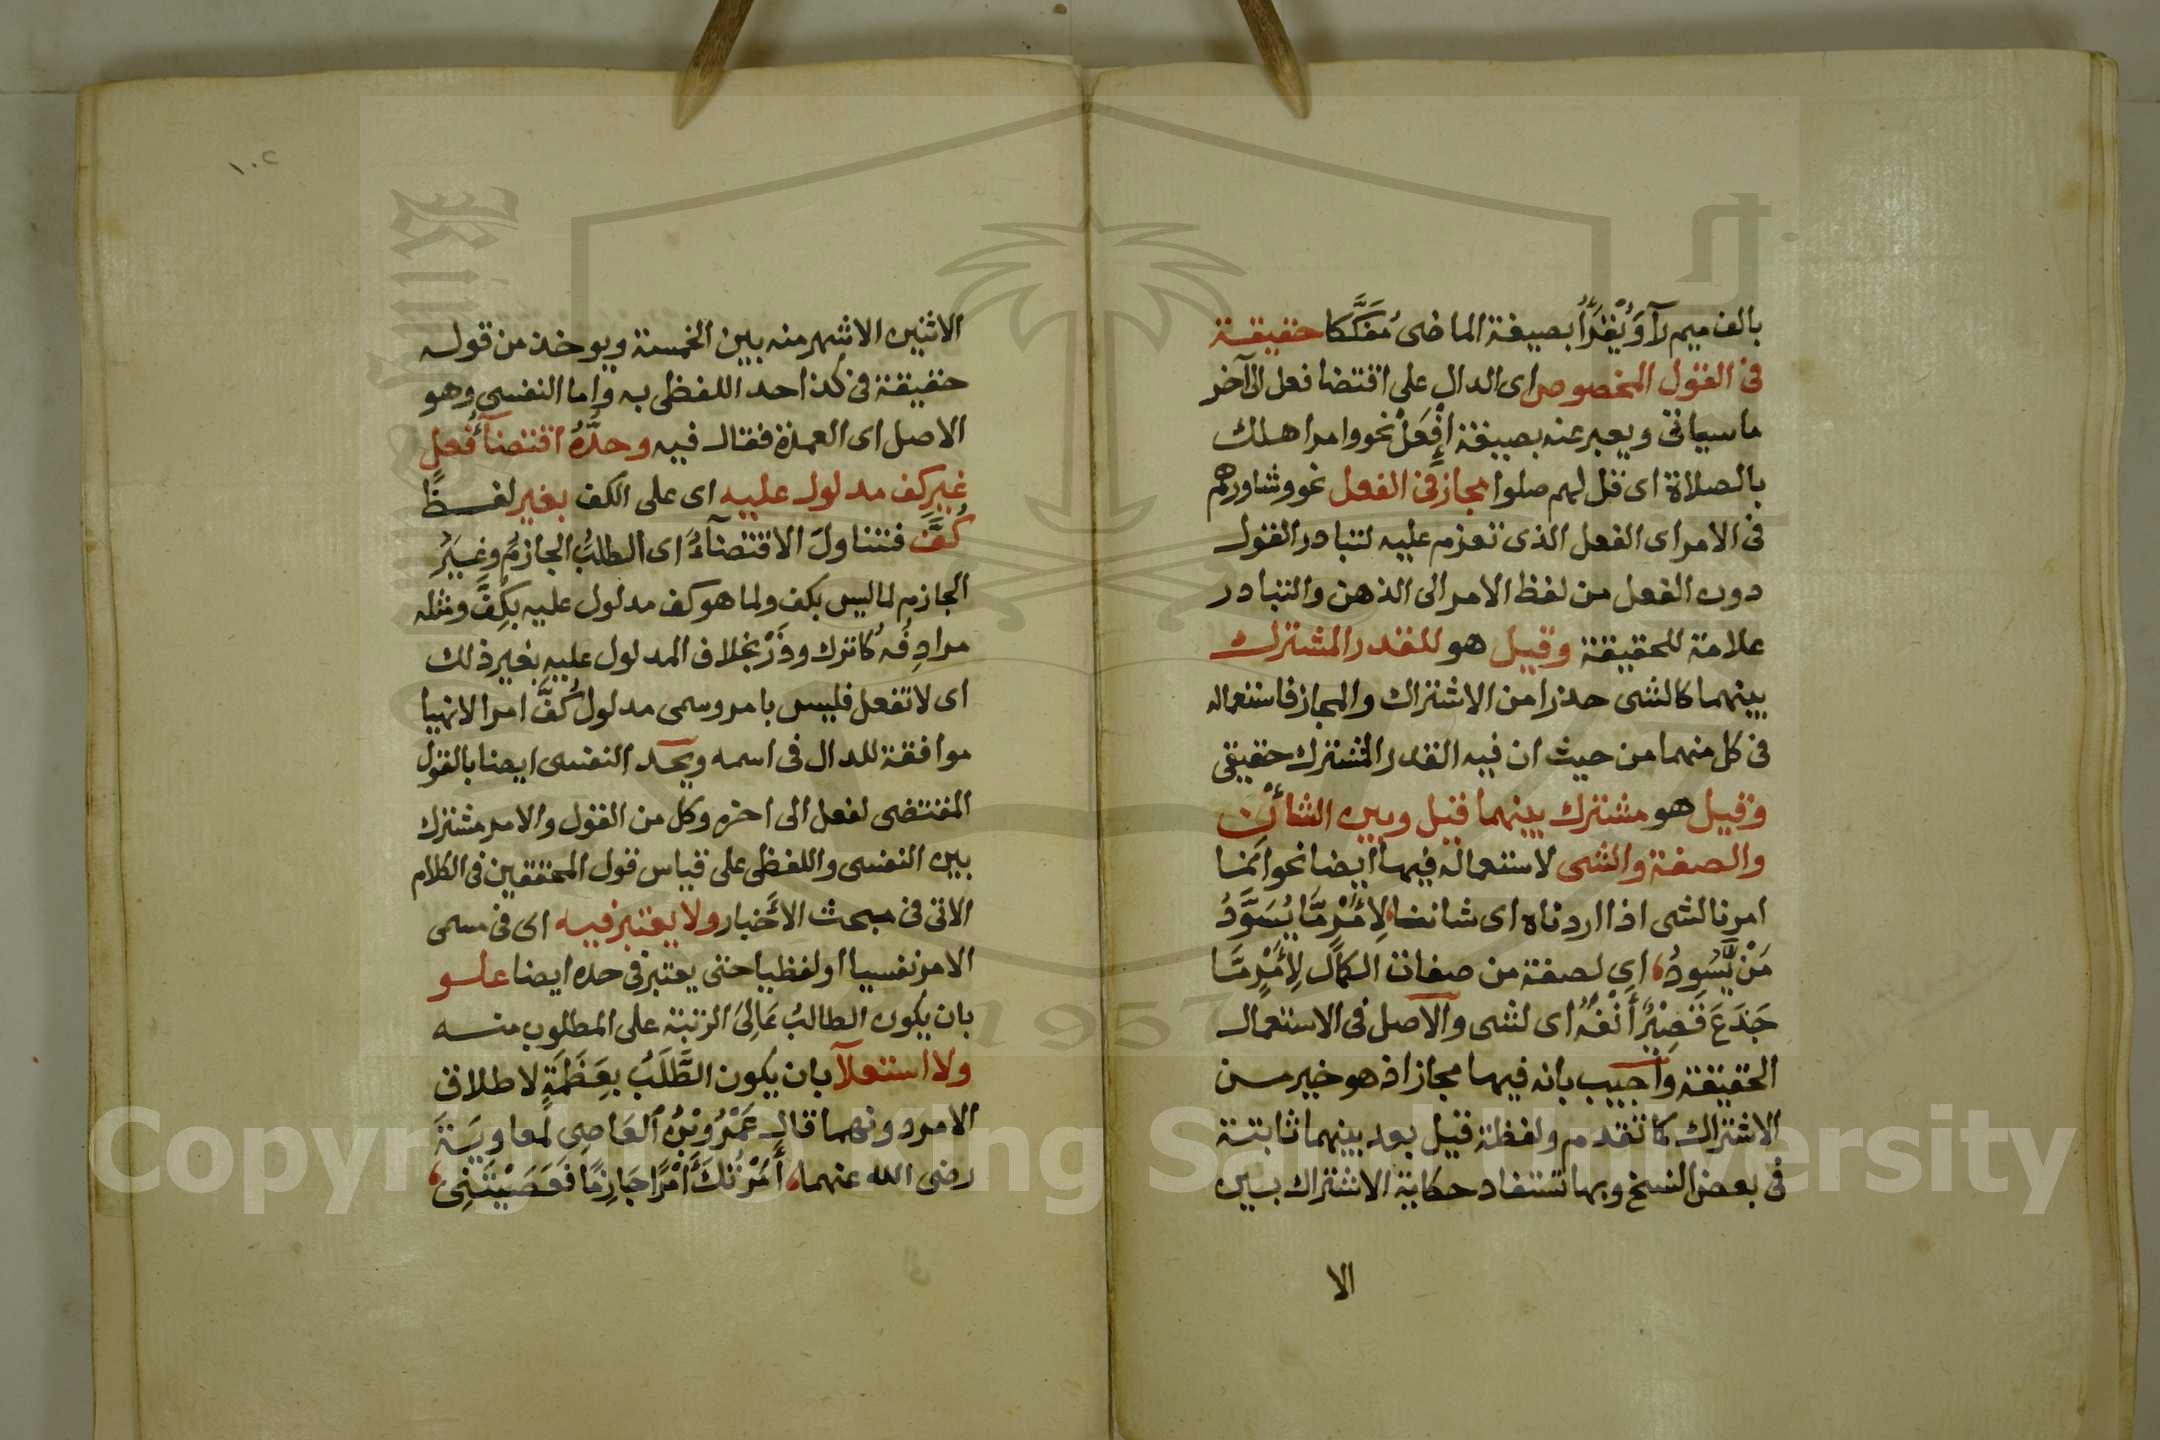 بالف ميم رآ وَيُقْرَأُ بصيغة الماضى مُفَكَّكًا حقيقة
فى القول المخصوص اى الدال على اقتضا فعل الى آخر
ما سياتى ويعبر عنه بصيغة اِفْعَلْ نحو وامر اهلك
بالصلاة اى قل لهم صلوا مجاز فى الفعل نحو وشاورهم
فى الامر اى الفعل الذى تعزم عليه لتبادر القول
دون الفعل من لفظ الامر الى الذهن والتبادر
علامة للحقيقة وقيل هو للقدر المشترك
بينهما كالشى حذرا من الاشتراك والمجاز فاستعماله
فى كل منهما من حيث ان فيه القدر المشترك حقيقى
وقيل هو مشترك بينهما قيل وبين الشأن
والصفة والشى لاستعماله فيها ايضا نحو انما
امرنا لشى اذا اردناه اى شاننا لِأَمْرٍ مَّا يُسَوَّدُ
مَنْ يَّسُودُ اى لصفة من صفات الكمال لِأَمْرٍ مَّا
جَدَعَ قَصِيْرٌ أَنْفَهُ اى لشى والاصل فى الاستعمال
الحقيقة واجيب بانه فيها مجاز اذ هو خير من
الاشتراك كما تقدم ولفظة قيل بعد بينهما ثابتة
فى بعض النسخ وبها تستفاد حكاية الاشتراك بين
الا
١٠٢
الاثنين الاشهر منه بين الخمسة ويوخذ من قوله
حقيقة فى كذا حد اللفظى به واما النفسى وهو
الاصل اى العمدة فقال فيه وحدُّهُ اقتضآءُ فعلٍ
غيرِ كف مدلول عليه اى على الكف بغير لفظ
كُفَّ فتناول الاقتضآءُ اى الطلبُ الجازمُ وغيرُ
الجازم لما ليس بكف ولما هو كف مدلول عليه بكُفَّ ومثله
مرادِفُهُ كاترك وذَرْ بخلاف المدلول عليه بغير ذلك
اى لا تفعل فليس بامر وسمى مدلول كُفَّ امرا لا نهيا
موافقة للدال فى اسمه ويحد النفسى ايضا بالقول
المقتضى لفعل الى اخره وكل من القول والامر مشترك
بين النفسى واللفظى على قياس قول المحققين فى الكلام
الاتى فى مبحث الأخبار ولا يعتبر فيه اى فى مسمى
الامر نفسيا او لفظيا حتى يعتبر فى حده ايضا علو
بان يكون الطالبُ عَالِىَ الرتبة على المطلوب منه
ولا استعلآ بان يكون الطَّلَبُ بِعَظَمَةٍ لاطلاق
الامر دونهما قال عَمْرُو بْنُ العَاصِى لمعاوية
رضى الله عنهما أَمَرْتُكَ أَمْرًا جَازِمًا فَعَصَيْتَنِى